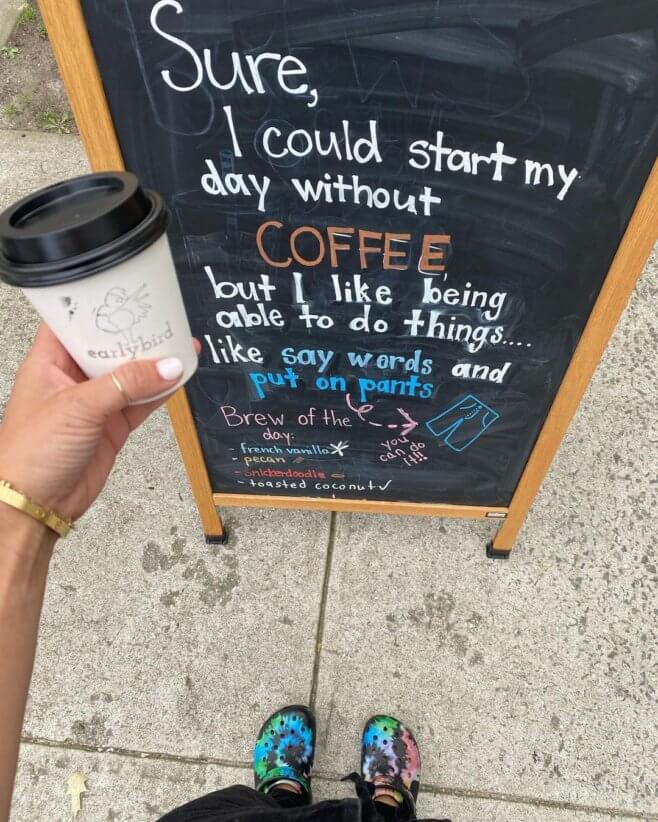 Sure,
I could start my
day without
COFFEE
but I like being
able to do things....
like say words and
put on pants
Brew of the
day:
- french vanilla
- pecan
- Snickerdoodle
- toasted coconut
you
can do
it!!
earlybird